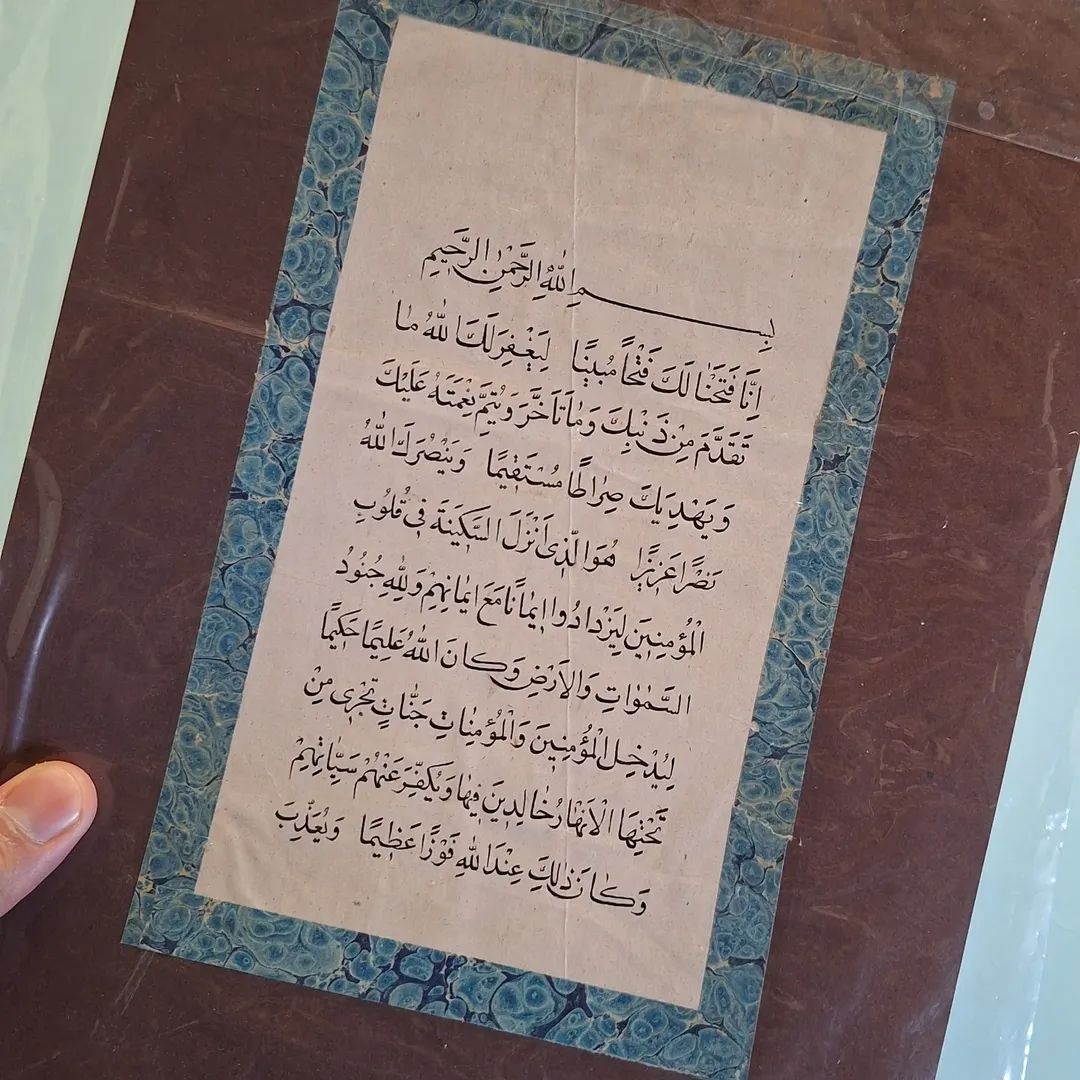 بِسْمِ اللّٰهِ الرَّحْمٰنِ الرَّحِيمِ
اِنَّا فَتَحْنَا لَكَ فَتْحًا مُبِينًا لِيَغْفِرَ لَكَ اللّٰهُ مَا
تَقَدَّمَ مِنْ ذَنْبِكَ وَمَا تَاَخَّرَ وَيُتِمَّ نِعْمَتَهُ عَلَيْكَ
وَيَهْدِيَكَ صِرَاطًا مُسْتَقِيمًا وَيَنْصُرَكَ اللّٰهُ
نَصْرًا عَزِيزًا هُوَ الَّذِى اَنْزَلَ السَّكِينَةَ فِى قُلُوبِ
الْمُؤْمِنِينَ لِيَزْدَادُوا اِيمَانًا مَعَ اِيمَانِهِمْ وَلِلّٰهِ جُنُودُ
السَّمٰوَاتِ وَالْاَرْضِ وَكَانَ اللّٰهُ عَلِيمًا حَكِيمًا
لِيُدْخِلَ الْمُؤْمِنِينَ وَالْمُؤْمِنَاتِ جَنَّاتٍ تَجْرِى مِنْ
تَحْتِهَا الْاَنْهَارُ خَالِدِينَ فِيهَا وَيُكَفِّرَ عَنْهُمْ سَيِّاٰتِهِمْ
وَكَانَ ذٰلِكَ عِنْدَ اللّٰهِ فَوْزًا عَظِيمًا وَيُعَذِّبَ